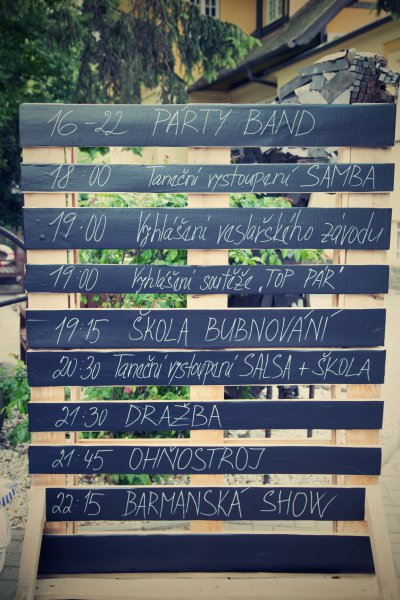 16-22 PARTY BAND
18:00 Taneční vystoupení SAMBA
19:00 Vyhlášení veslařského závodu
19:00 Vyhlášení soutěže „TOP PÁR"
19:15 ŠKOLA BUBNOVÁNÍ
20:30 Taneční vystoupení SALSA + ŠKOLA
21:30 DRAŽBA
21:45 OHŇOSTROJ
22:15 BARMANSKÁ SHOW